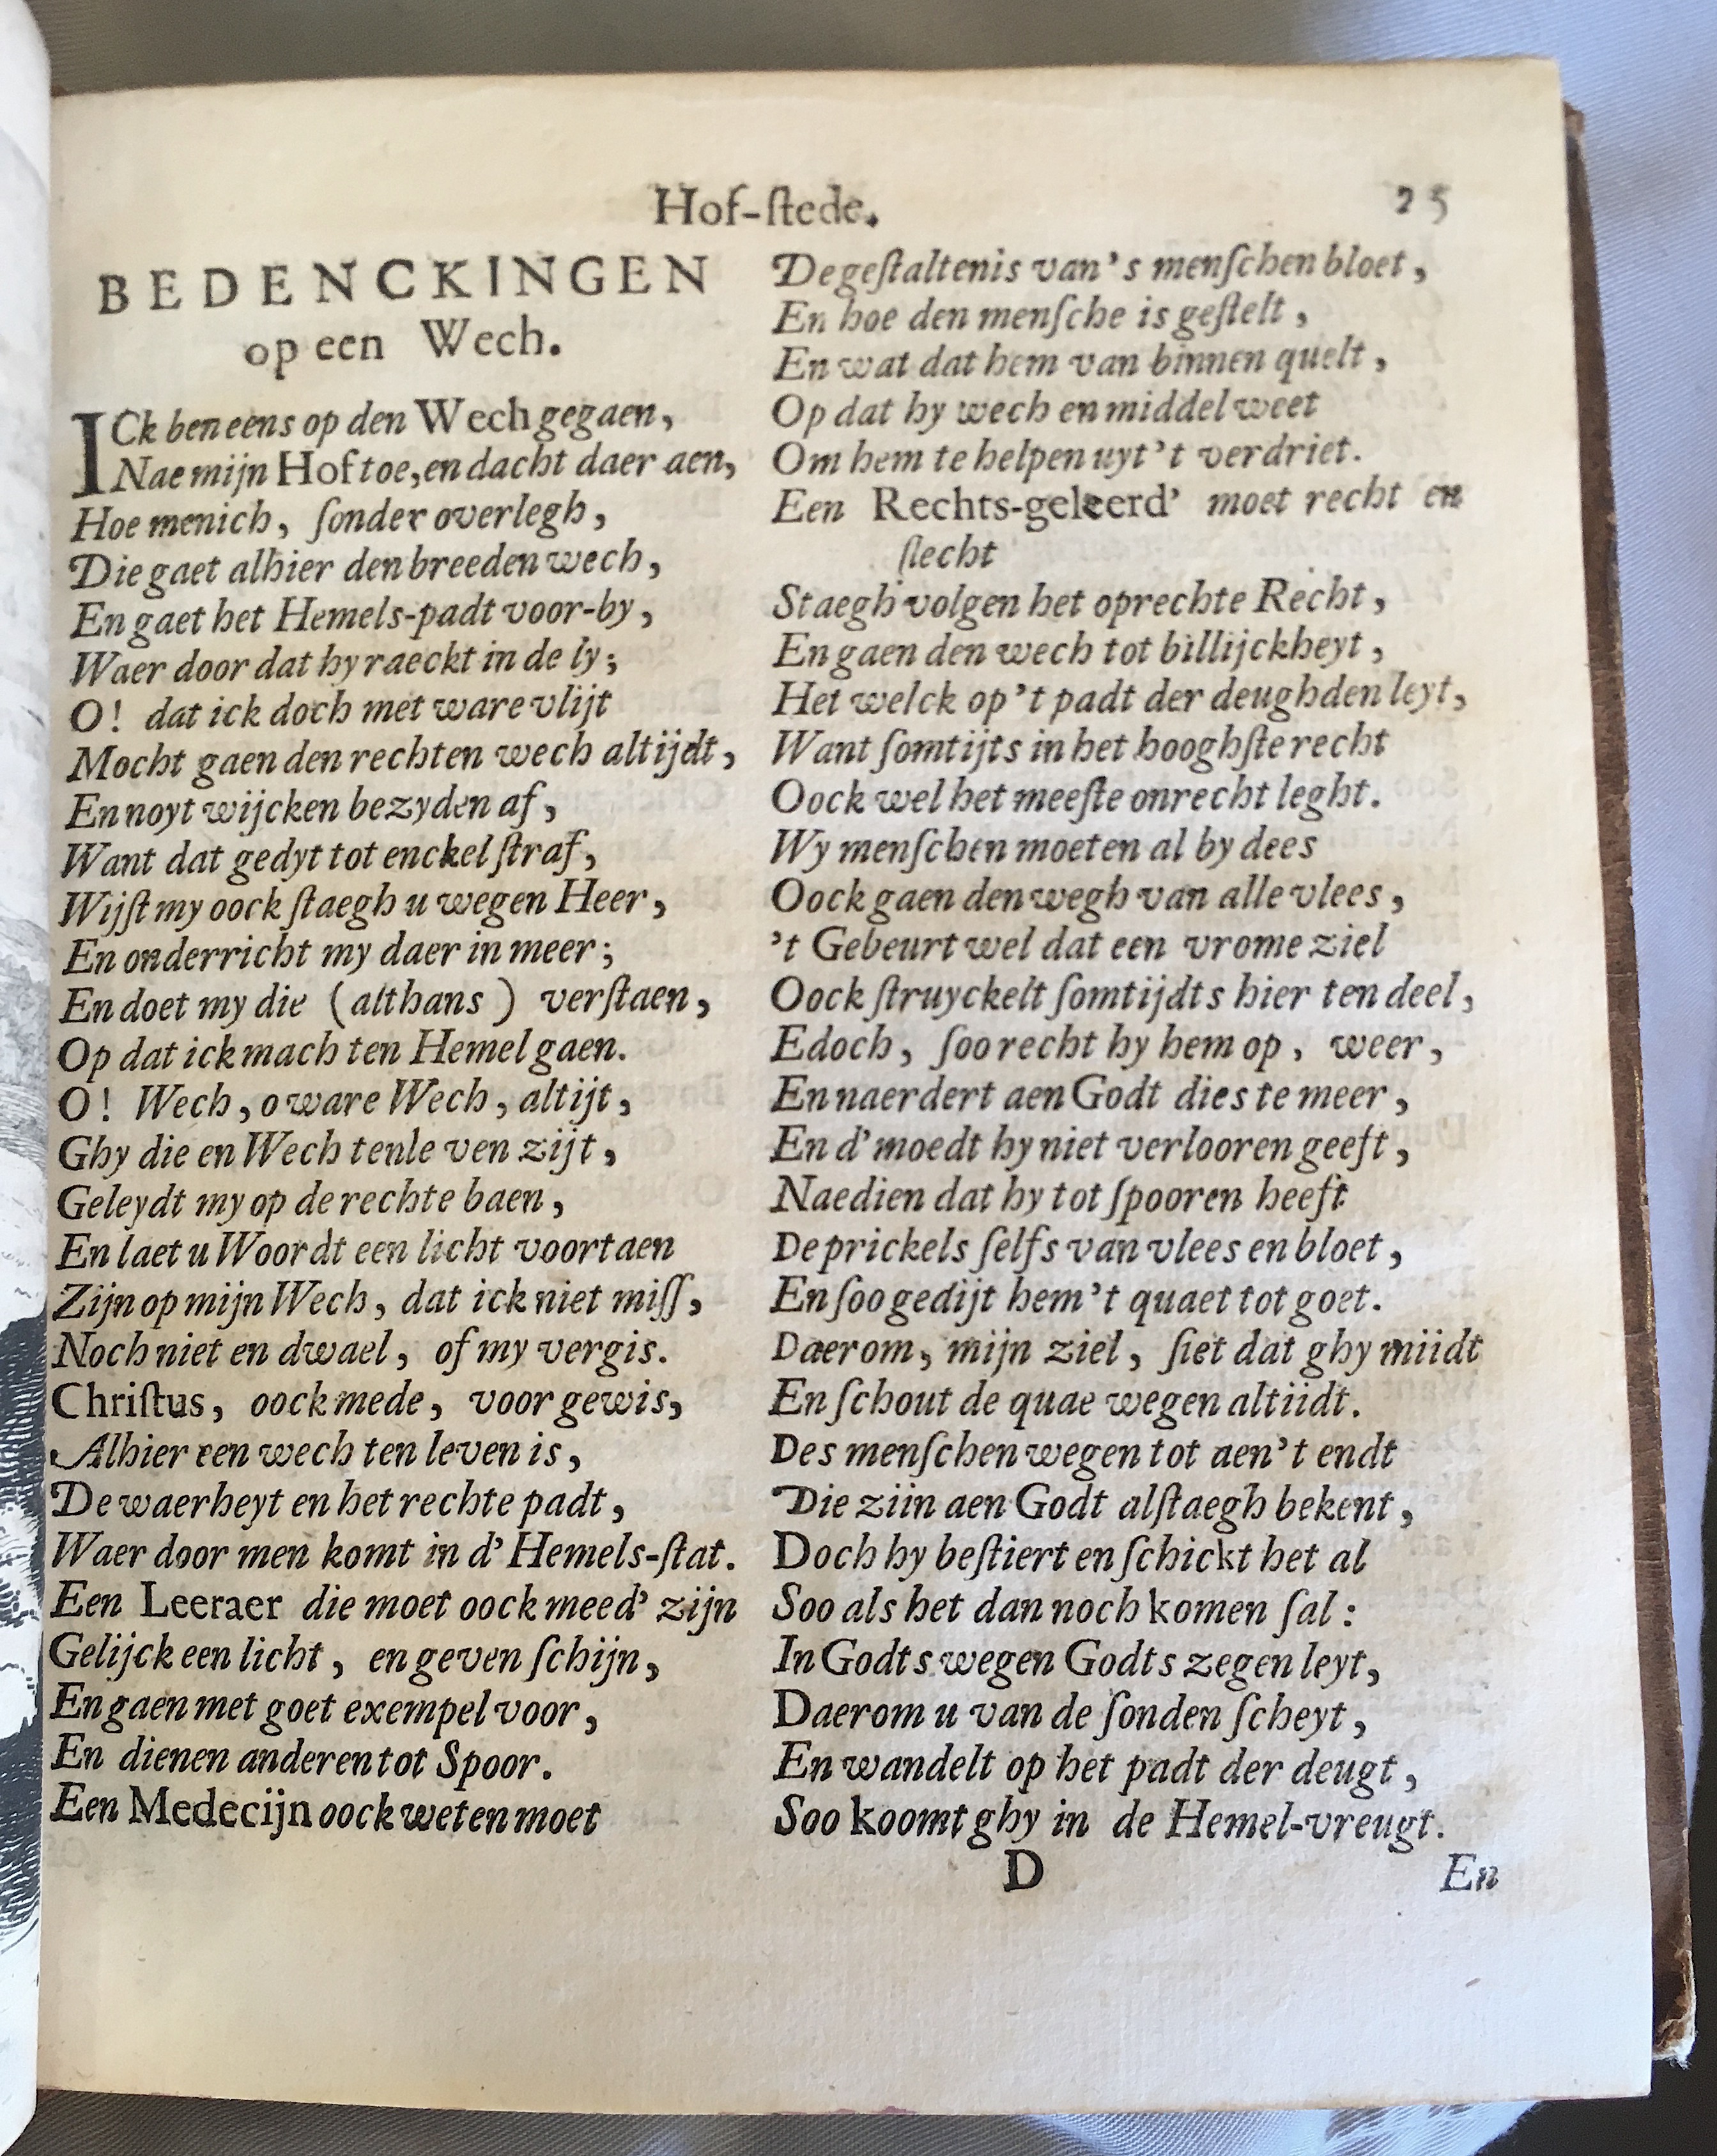 Hof-ſtede. 25
BEDENCKINGEN
op een Wech.
ICk ben eens op den Wech gegaen,
Nae mijn Hof toe, en dacht daer aen,
Hoe menich, ſonder overlegh,
Die gaet alhier den breeden wech,
En gaet het Hemels-padt voor-by,
Waer door dat hy raeckt in de ly;
O! dat ick doch met ware vlijt
Mocht gaen den rechten wech altijdt,
En noyt wijcken bezyden af,
Want dat gedyt tot enckel ſtraf,
Wijſt my oock ſtaegh u wegen Heer,
En onderricht my daer in meer;
En doet my die (althans) verſtaen,
Op dat ick mach ten Hemel gaen.
O! Wech, o ware Wech, altijt,
Ghy die en Wech tenle ven zijt,
Geleydt my op de rechte baen,
En laet u Woordt een licht voortaen
Zijn op mijn Wech, dat ick niet miſſ,
Noch niet en dwael, of my vergis.
Chriſtus, oock mede, voor gewis,
Alhier een wech ten leven is,
De waerheyt en het rechte padt,
Waer door men komt in d' Hemels-ſtat.
Een Leeraer die moet oock meed' zijn
Gelijck een licht, en geven ſchijn,
En gaen met goet exempel voor,
En dienen anderen tot Spoor.
Een Medecijn oock weten moet
De geſtaltenis van 's menſchen bloet,
En hoe den menſche is geſtelt,
En wat dat hem van binnen quelt,
Op dat hy wech en middel weet
Om hem te helpen uyt 't verdriet.
Een Rechts-geleerd' moet recht en
ſlecht
Staegh volgen het oprechte Recht,
En gaen den wech tot billijckheyt,
Het welck op 't padt der deughden leyt,
Want ſomtijts in het hooghſte recht
Oock wel het meeſte onrecht leght.
Wy menſchen moeten al by dees
Oock gaen den wegh van alle vlees,
't Gebeurt wel dat een vrome ziel
Oock ſtruyckelt ſomtijdts hier ten deel,
Edoch, ſoo recht hy hem op, weer,
En naerdert aen Godt dies te meer,
En d' moedt hy niet verlooren geeft,
Naedien dat hy tot ſpooren heeft
De prickels ſelfs van vlees en bloet,
En ſoo gedijt hem 't quaet tot goet.
Daerom, mijn ziel, ſiet dat ghy miidt
En ſchout de quae wegen altiidt.
Des menſchen wegen tot aen 't endt
Die ziin aen Godt alſtaegh bekent,
Doch hy beſtiert en ſchickt het al
Soo als het dan noch komen ſal:
In Godts wegen Godts zegen leyt,
Daerom u van de ſonden ſcheyt,
En wandelt op het padt der deugt,
Soo koomt ghy in de Hemel-vreugt.
D En